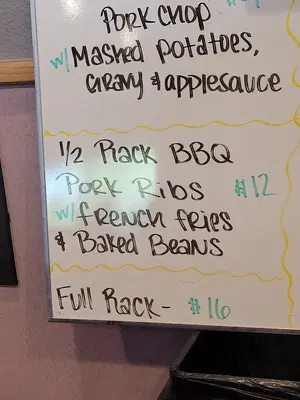 Pork Chop
w/ Mashed Potatoes,
Gravy & applesauce
1/2 Rack BBQ
Pork Ribs $12
w/ french fries
& Baked Beans
Full Rack- $16